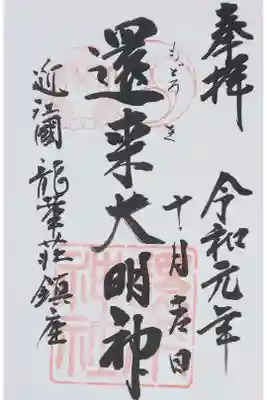 奉拝
令和元年
十一月吉日
もどろき
還来大明神
近江國 龍華荘鎮座